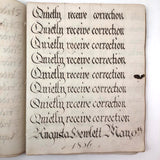 Quietly receive correction
Quietly receive correction
Quietly receive correction
Quietly receive correction
Quietly receive correction
Quietly receive correction
Quietly receive correction
Quietly receive correction
Augusta Hewlett May 9th
1836